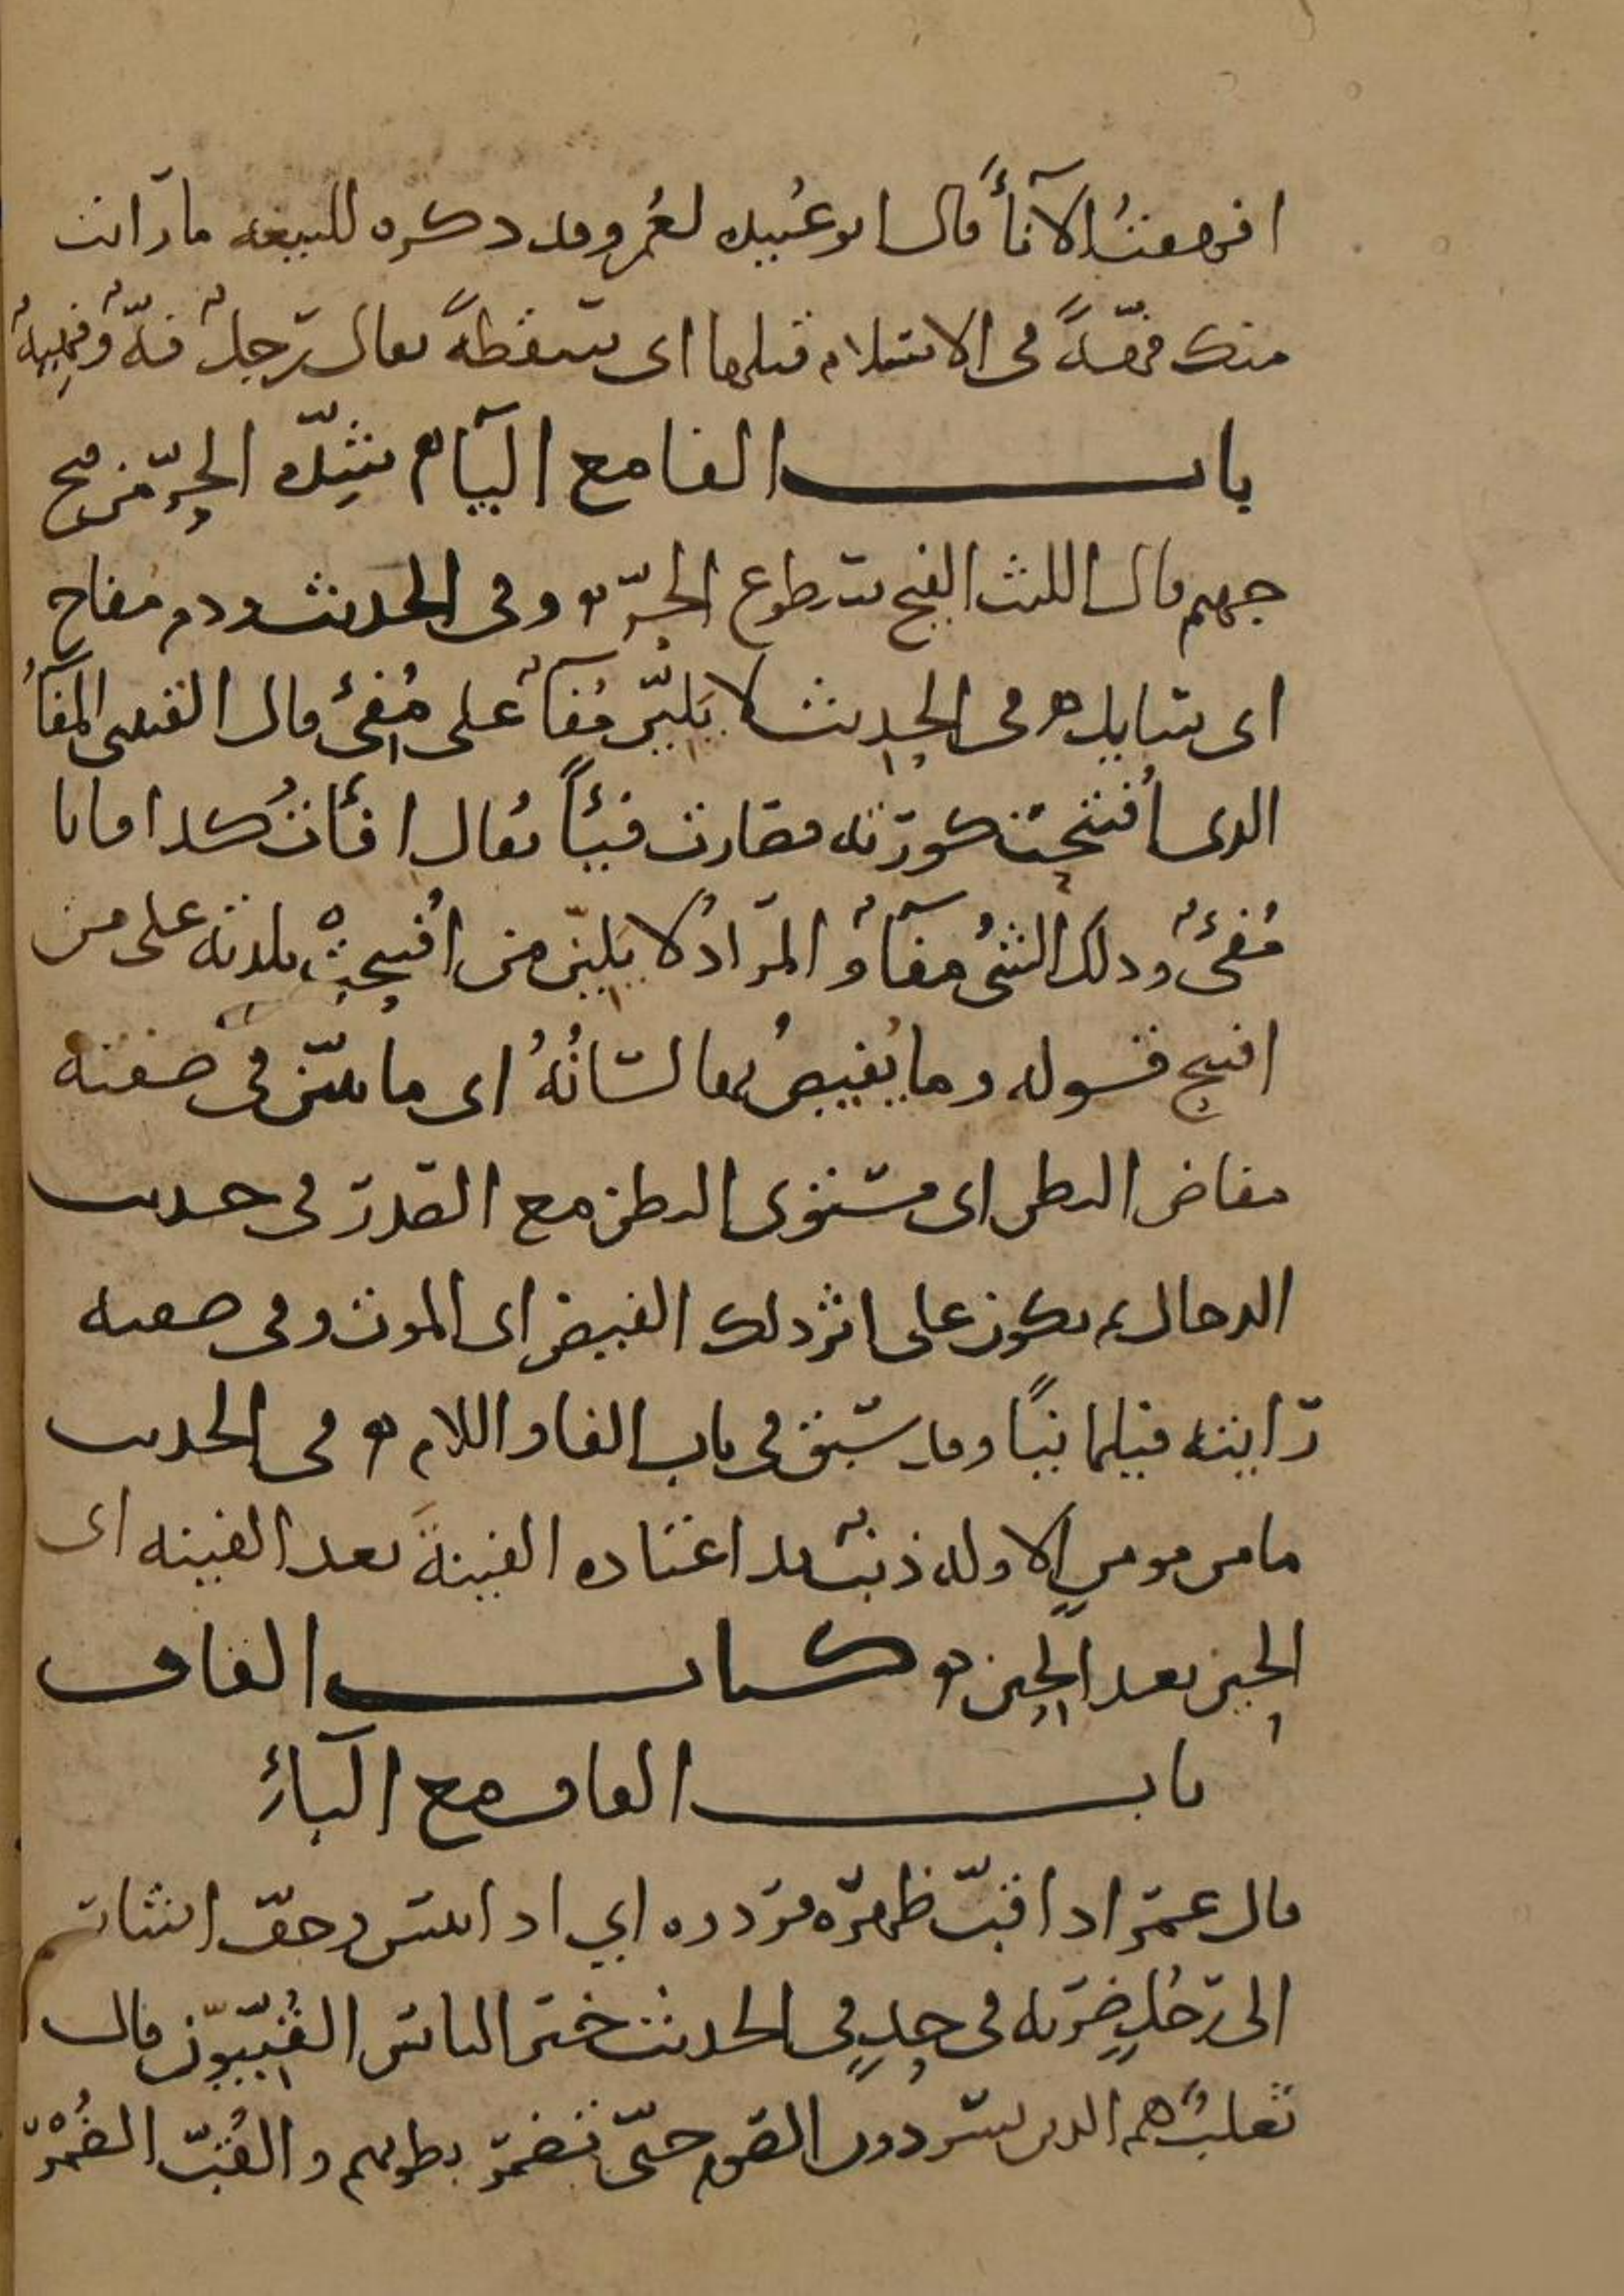 افهقت الاناء قال ابو عبيده لعمر وقد ذكره للبيعه ما رايت
منك فهّةً في الاسلام قبلها اي سقطةً يقال رجلٌ فهٌّ وفهيهٌ
باب الفا مع الياء شدّه الحرّ من فيح
جهنم قال الليث الفيح سطوع الحرّ وفي الحديث ودم مفاح
اي سايل في الحديث لا يَلِيَنّ مُفآءٌ على مُفئٍ قال القتبي المفآءُ
الذي اُفتتحت كورته فصارت فيئاً يقال افأتُ كذا فانا
مُفئٌ وذلك الشئُ مفآءٌ المرادُ لا يَلِيَنّ من افتتحت بلدته على من
افتتح قوله وما يُفيصُ بها لسانُهُ اي ما يبين في صفته
مفاض البطن اي مستوى البطن مع الصدر في حديث
الدجال ثم يكون على اثر ذلك الفيض اي الموت وفي صفته
رايته فيلمانيًا وقد سبق في باب الفا واللام في الحديث
ما من مومنٍ الا وله ذنبٌ قد اعتاده الفينةَ بعد الفينه اي
الحين بعد الحين كتاب القاف
باب القاف مع الباءِ
قال عمر اذا قبّ ظهره فردوه اي اذا يبس وجفّ اشار
الى رجلٍ ضربه في حدٍ في الحديث خير الناس القُبّيّون قال
ثعلبٌ هم الذين يسردون الصوم حتّى تضمر بطونهم والقُبّ الضُمْر